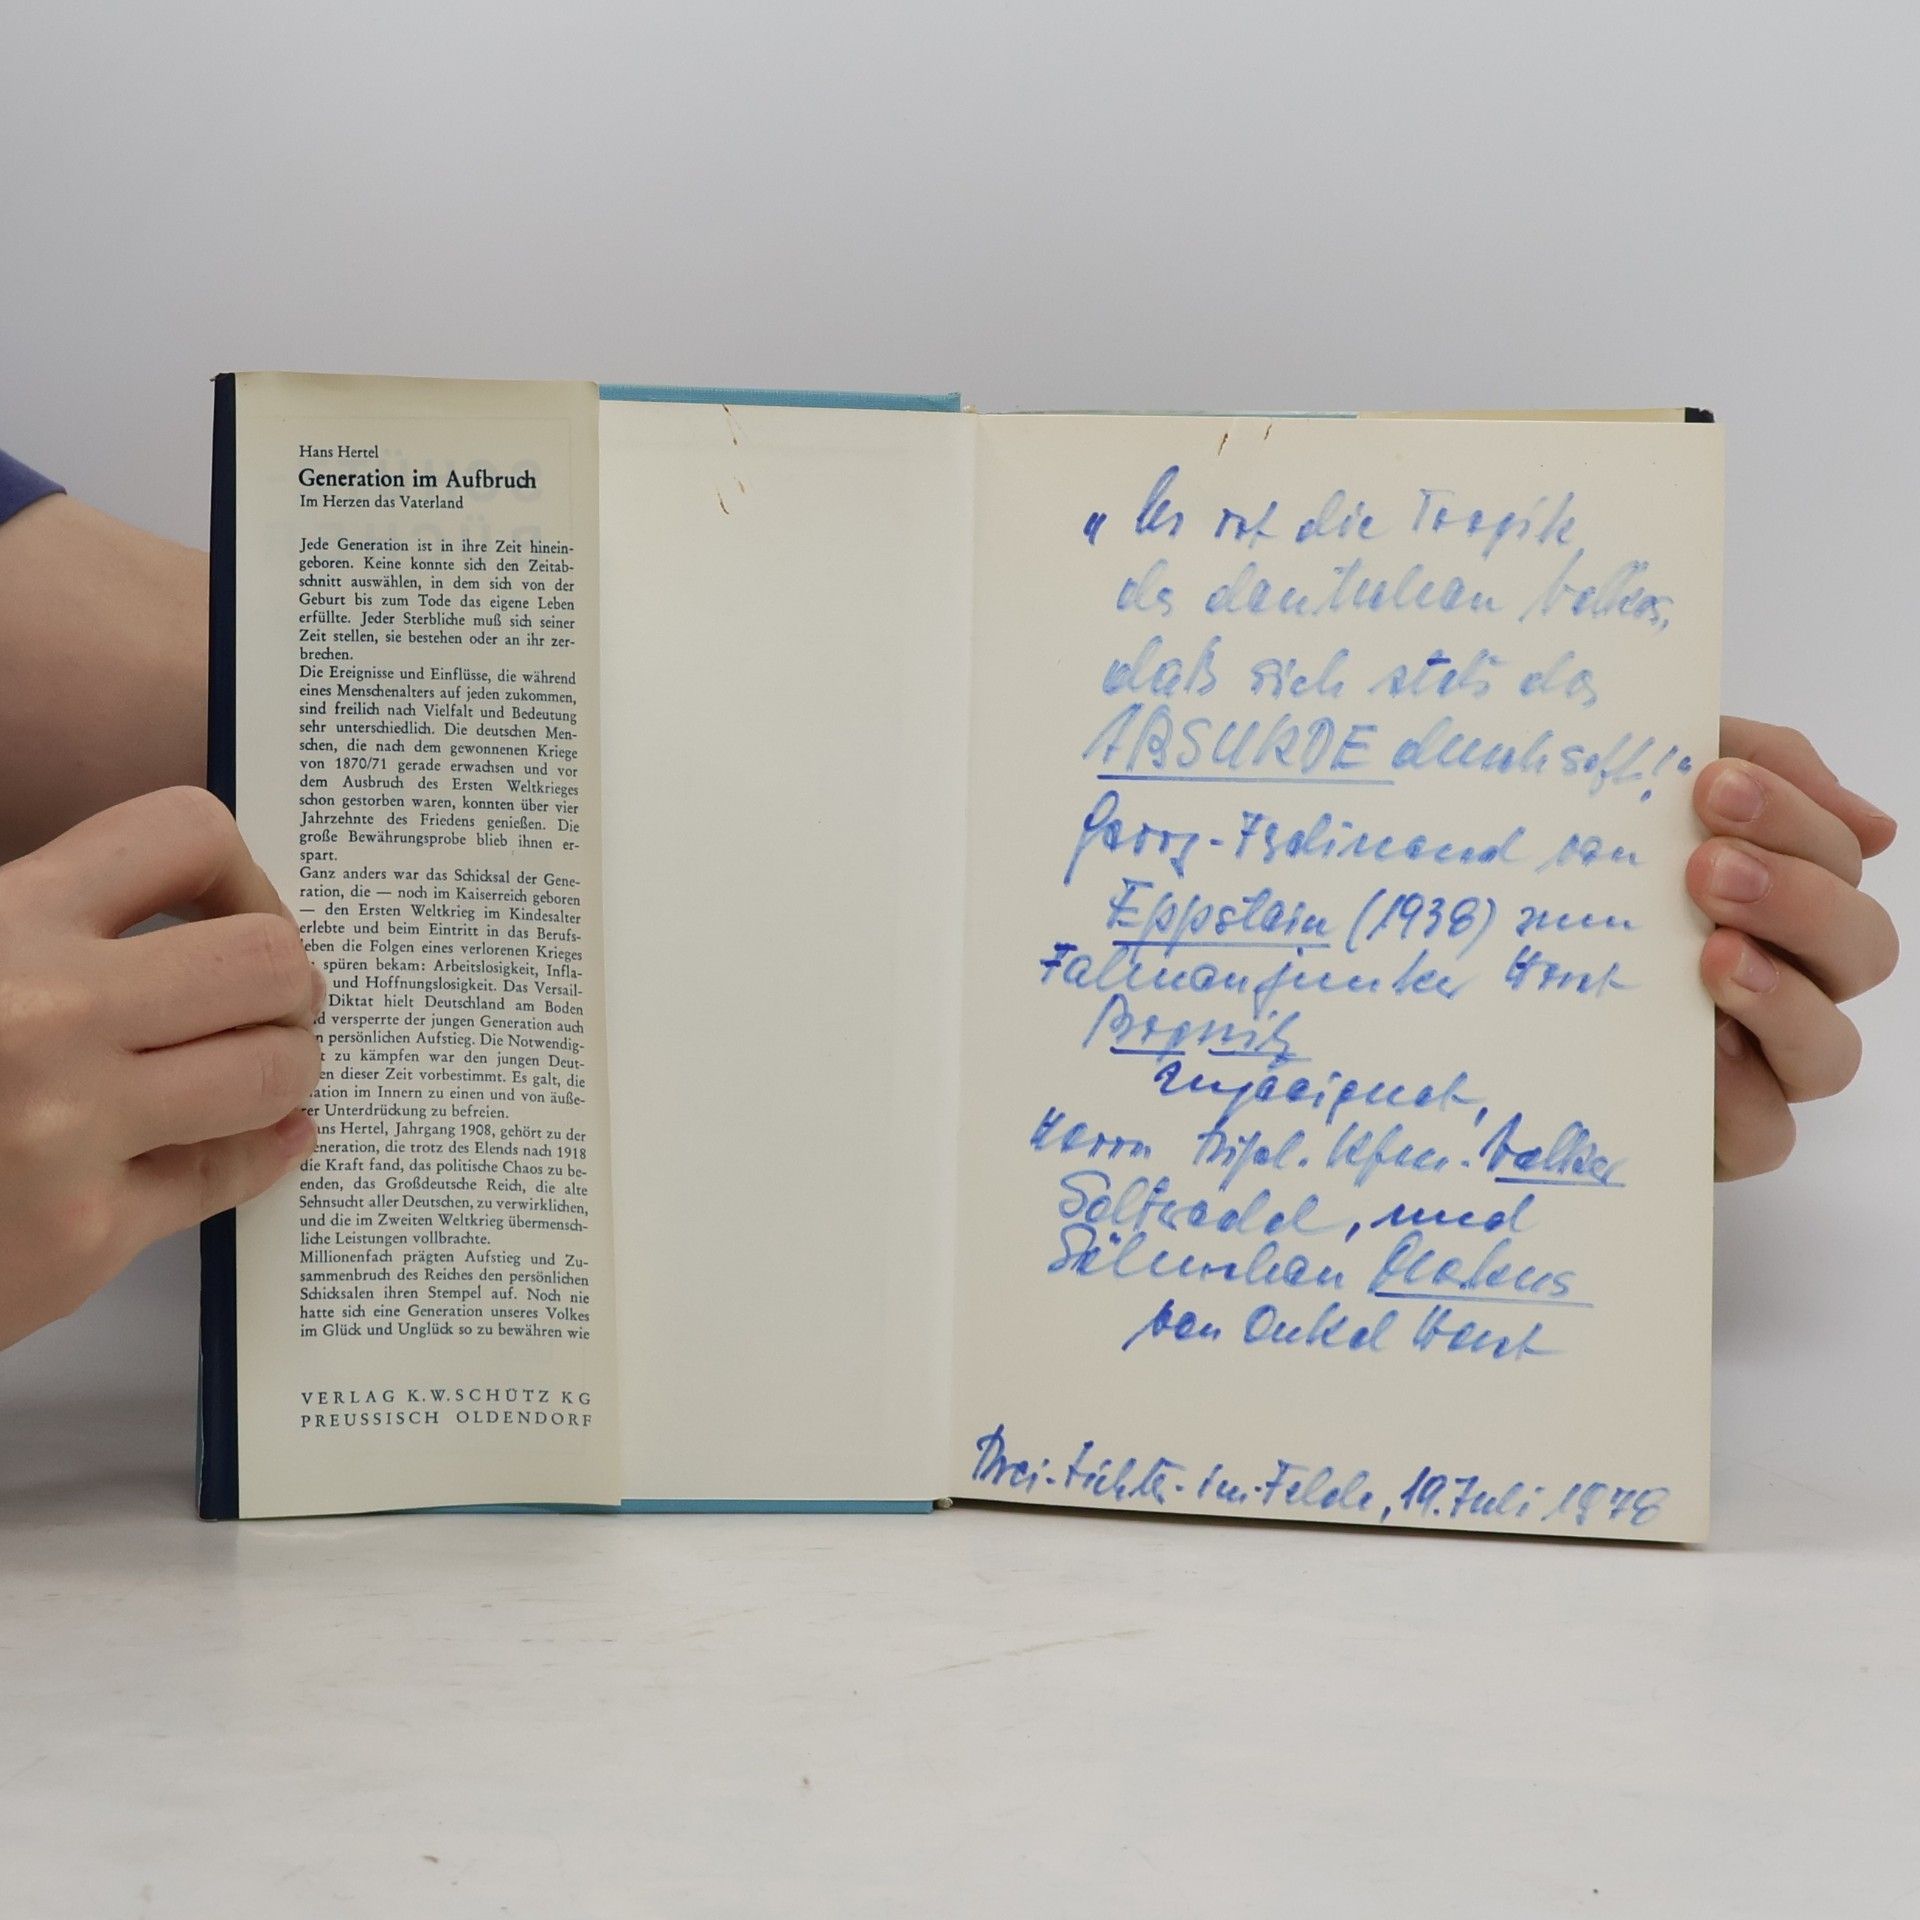 Hans Hertel
Generation im Aufbruch
Im Herzen das Vaterland
Jede Generation ist in ihre Zeit hinein-
geboren. Keine konnte sich den Zeitab-
schnitt auswählen, in dem sich von der
Geburt bis zum Tode das eigene Leben
erfüllte. Jeder Sterbliche muß sich seiner
Zeit stellen, sie bestehen oder an ihr zer-
brechen.
Die Ereignisse und Einflüsse, die während
eines Menschenalters auf jeden zukommen,
sind freilich nach Vielfalt und Bedeutung
sehr unterschiedlich. Die deutschen Men-
schen, die nach dem gewonnenen Kriege
von 1870/71 gerade erwachsen und vor
dem Ausbruch des Ersten Weltkrieges
schon gestorben waren, konnten über vier
Jahrzehnte des Friedens genießen. Die
große Bewährungsprobe blieb ihnen er-
spart.
Ganz anders war das Schicksal der Gene-
ration, die — noch im Kaiserreich geboren
— den Ersten Weltkrieg im Kindesalter
erlebte und beim Eintritt in das Berufs-
leben die Folgen eines verlorenen Krieges
spüren bekam: Arbeitslosigkeit, Infla-
und Hoffnungslosigkeit. Das Versail-
Diktat hielt Deutschland am Boden
d versperrte der jungen Generation auch
n persönlichen Aufstieg. Die Notwendig-
t zu kämpfen war den jungen Deut-
en dieser Zeit vorbestimmt. Es galt, die
ation im Innern zu einen und von äuße-
rer Unterdrückung zu befreien.
ans Hertel, Jahrgang 1908, gehört zu der
eneration, die trotz des Elends nach 1918
die Kraft fand, das politische Chaos zu be-
enden, das Großdeutsche Reich, die alte
Sehnsucht aller Deutschen, zu verwirklichen,
und die im Zweiten Weltkrieg übermensch-
liche Leistungen vollbrachte.
Millionenfach prägten Aufstieg und Zu-
sammenbruch des Reiches den persönlichen
Schicksalen ihren Stempel auf. Noch nie
hatte sich eine Generation unseres Volkes
im Glück und Unglück so zu bewähren wie
VERLAG K.W. SCHÜTZ KG
PREUSSISCH OLDENDORF
„Es ist die Tragik
des deutschen Volkes,
daß sich stets das
ABSURDE durchsetzt!"
Georg-Ferdinand von
Eppstein (1938) zum
Fahnenjunker Horst
zugeeignet,
Herrn Dipl. Kfm. Volker
und
Söhnchen Markus
von Onkel Horst
Drei-Fichten-im-Felde, 19. Juli 1978